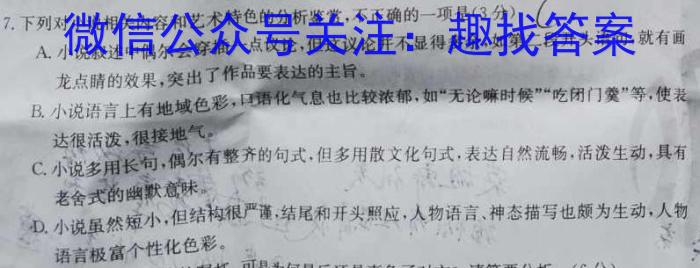 7.下列对小说相关内容和艺术特色的分析鉴赏,不正确的一项是(3分)(
微信公众号关注:趣找答案
A.小说叙述中偶尔会穿插一点议论,但这议论并不显得 就有画
龙点睛的效果,突出了作品要表达的主旨。
B.小说语言上有地域色彩,口语化气息也比较浓郁,如“无论嘛时候”“吃闭门羹”等,使表
达很活泼,很接地气。
C.小说多用长句,偶尔有整齐的句式,但多用散文化句式,表达自然流畅,活泼生动,具有
老舍式的幽默意味。
D.小说虽然短小,但结构很严谨,结尾和开头照应,人物语言、神态描写也颇为生动,人物
语言极富个性化色彩。